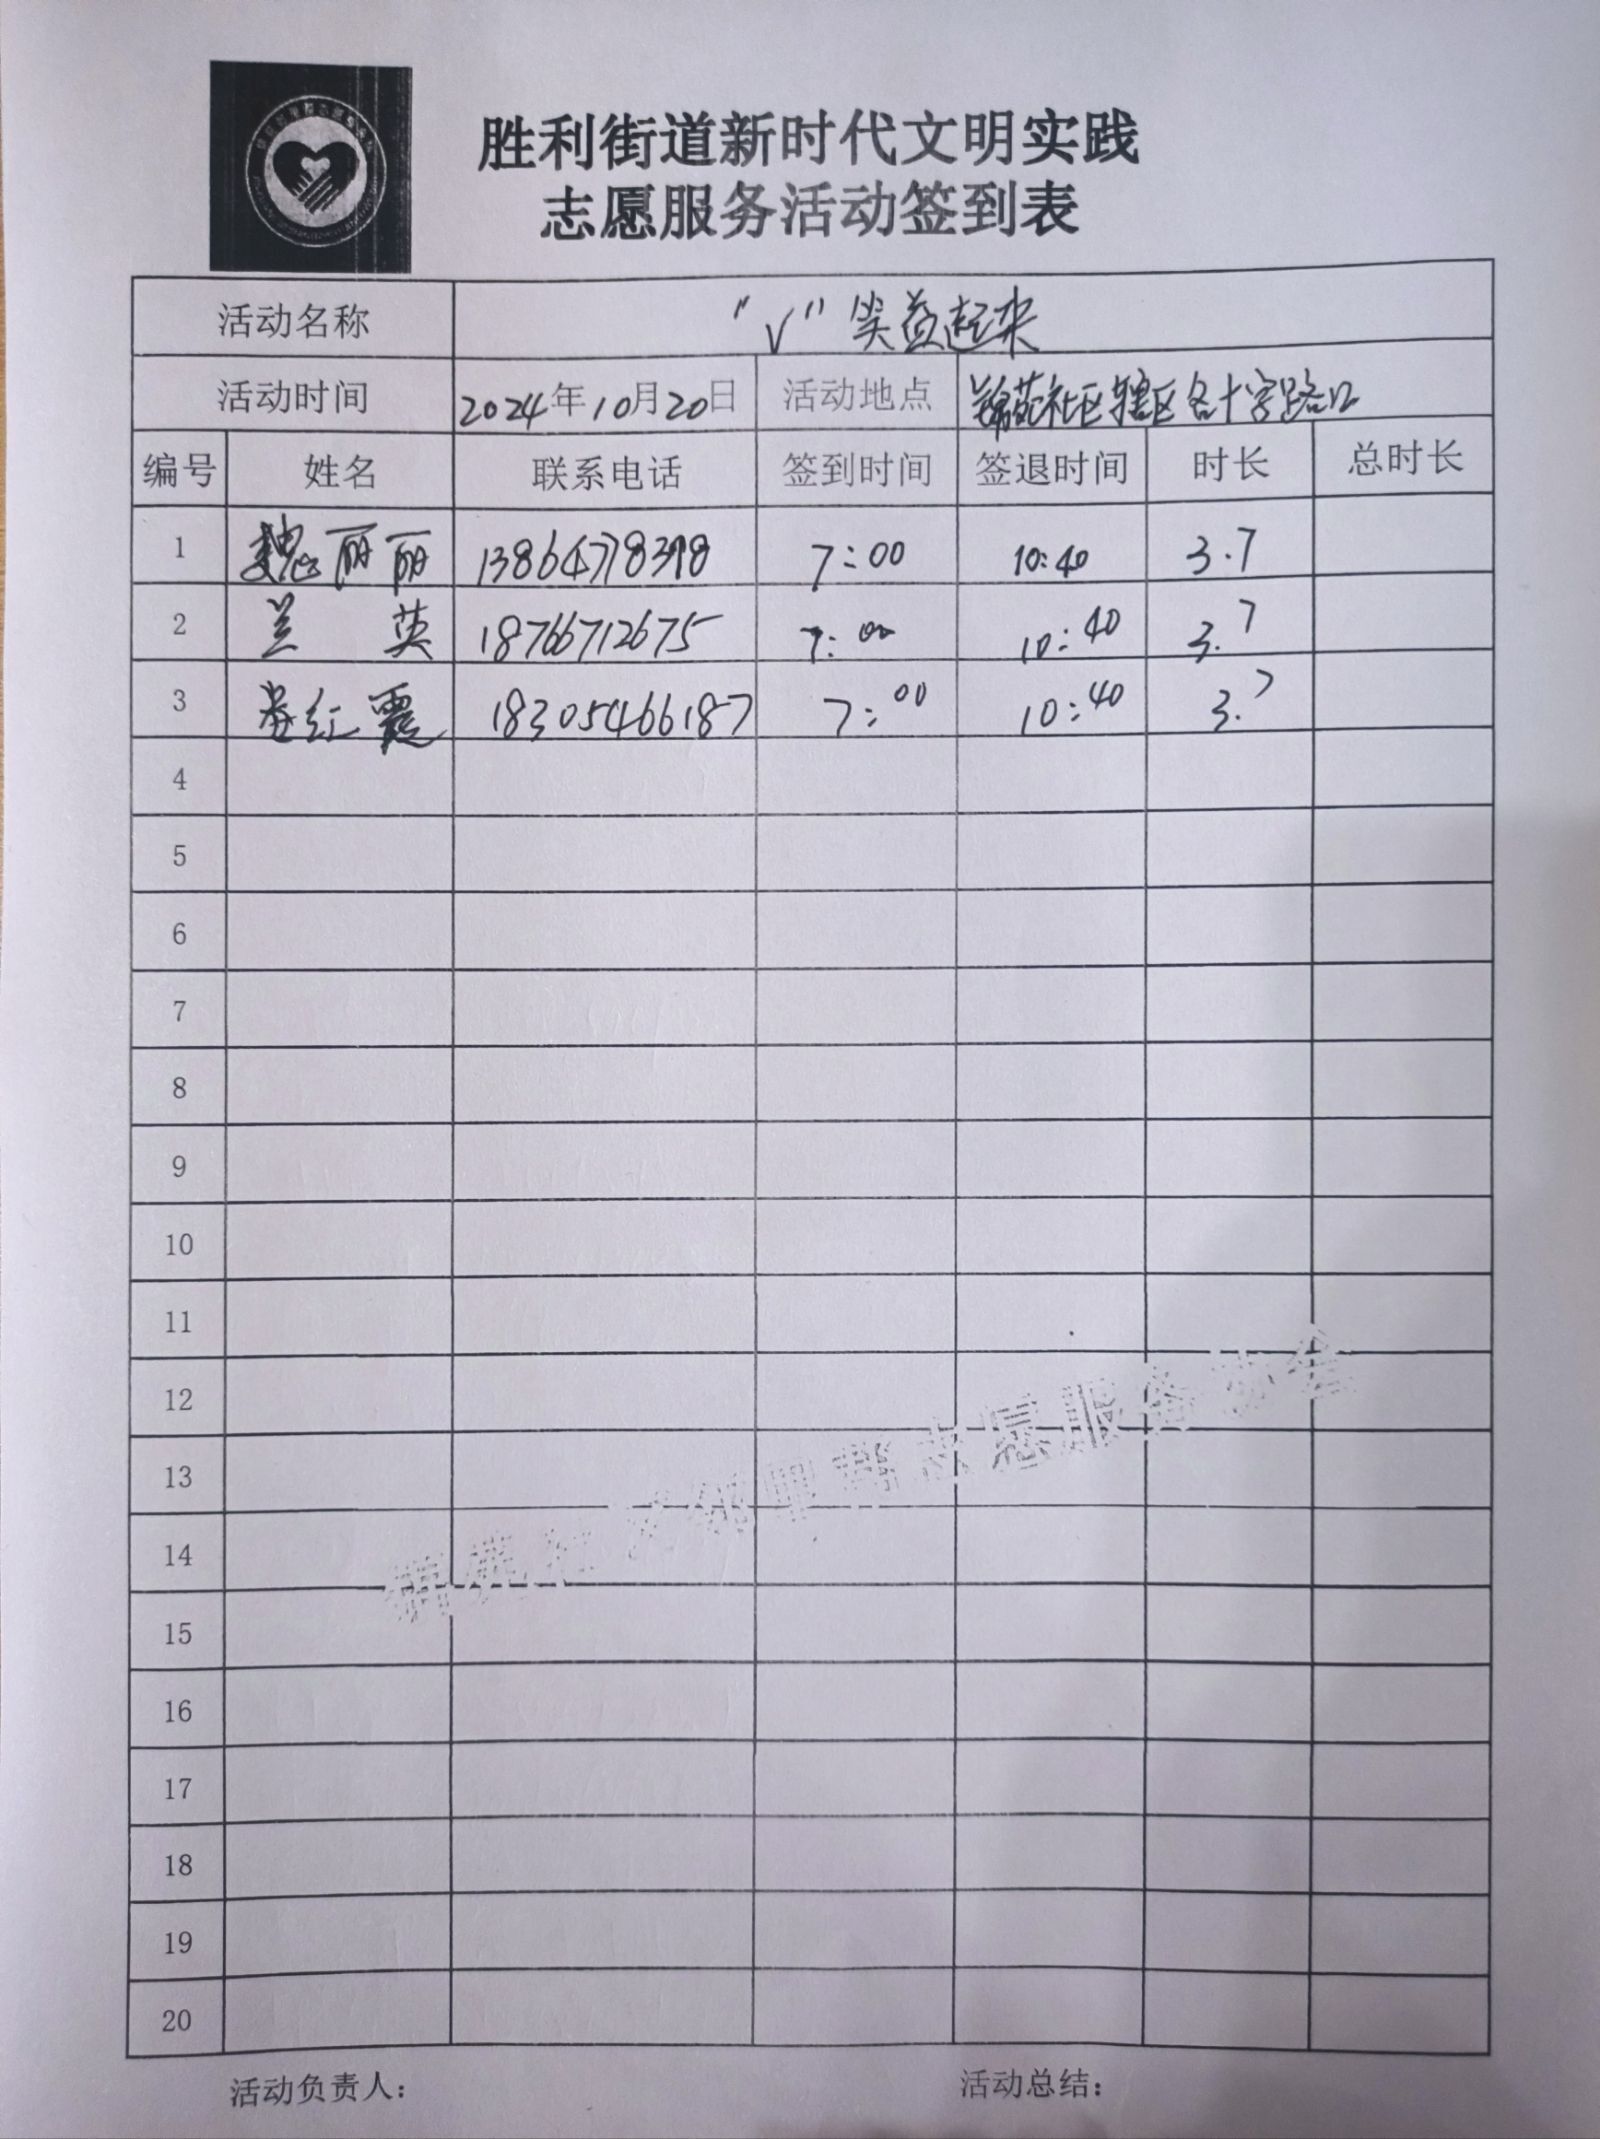 胜利街道新时代文明实践
志愿服务活动签到表
活动名称 "V"笑益起来
活动时间 2024年10月20日 活动地点 锦苑社区辖区各十字路口
编号 姓名 联系电话 签到时间 签退时间 时长 总时长
1 魏丽丽 13864778398 7:00 10:40 3.7
2 兰英 18766712675 7:00 10:40 3.7
3 红霞 18305466187 7:00 10:40 3.7
4
5
6
7
8
9
10
11
12
13
14
15
16
17
18
19
20
锦苑社区邻里群志愿服务协会
活动负责人： 活动总结：